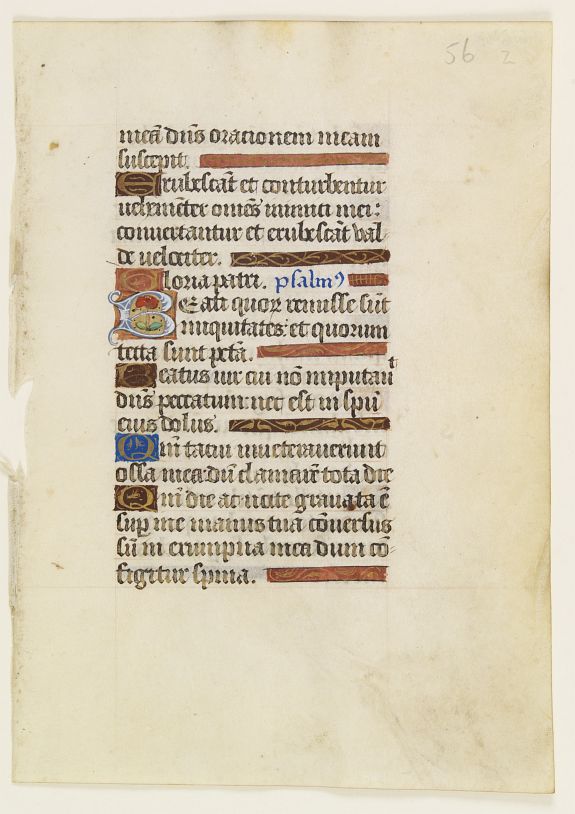 56 2
meā dn̄s oracionem meam
suscepit.
Erubescāt et conturbentur
vehemēter om̄es inimici mei:
convertantur et erubescāt val-
de velociter.
Gloria patri. psalmꝰ
Beati quoꝝ remisse sūt
iniquitates: et quorum
tecta sunt pctā.
Beatus vir cui nō imputavit
dn̄s peccatum: nec est in spū
eius dolus.
Qm̄ tacui inveteraverunt
ossa mea: dū clamarē tota die
Qm̄ die ac nocte gravata ē
sup̄ me manus tua: cōversus
sū in erumpna mea dum cō-
figitur spina.